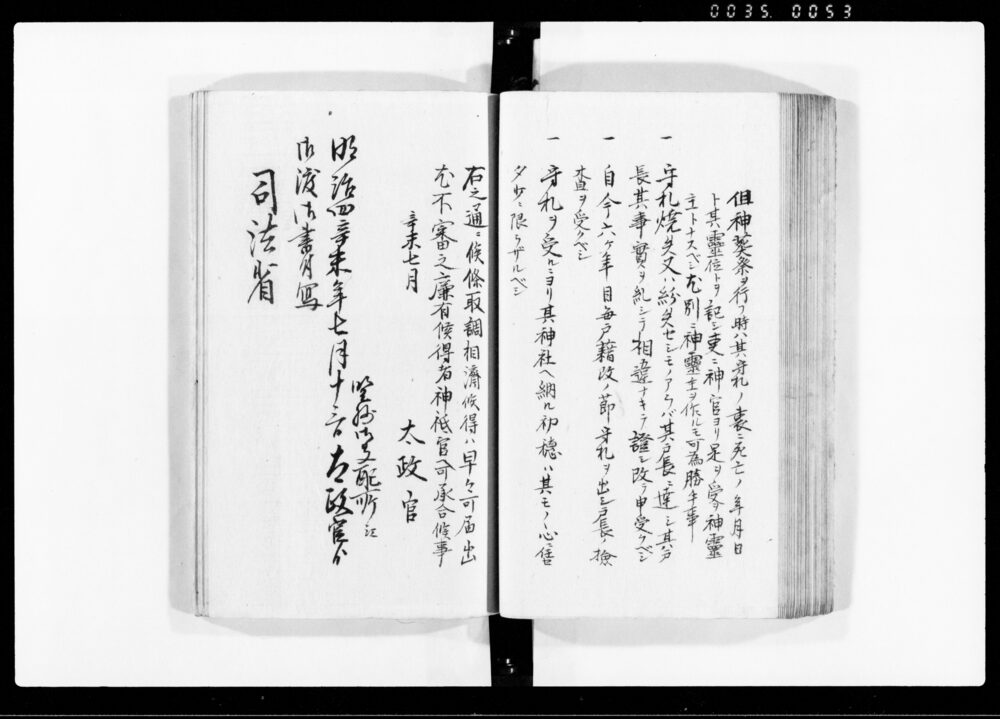 0035. 0053
但神葬祭ヲ行フ時ハ其守札ノ裏ニ死亡ノ年月日
ト其靈位トヲ記シ更ニ神官ヨリ是ヲ受ケ神靈
主トナスベシ尤別ニ神靈主ヲ作ルモ可為勝手事
一 守札焼失又ハ紛失セシモノアラバ其戸長ニ達シ其戸
長其事實ヲ糺シテ相違ナキヲ證シ改テ申受クベシ
一 自今六ヶ年目毎戸籍改ノ節守札ヲ出シ戸長ノ檢
査ヲ受クベシ
一 守札ヲ受ルニヨリ其神社ヘ納ル初穂ハ其モノヽ心ニ任セ
多少ニ限ラザルベシ
右之通ニ候條取調相濟候得ハ早々可届出
尤不審之廉有候得者神祇官ヘ可承合候事
辛未七月
太政官
明治四辛未年七月十
太政官ゟ
御渡御書付写
司法省